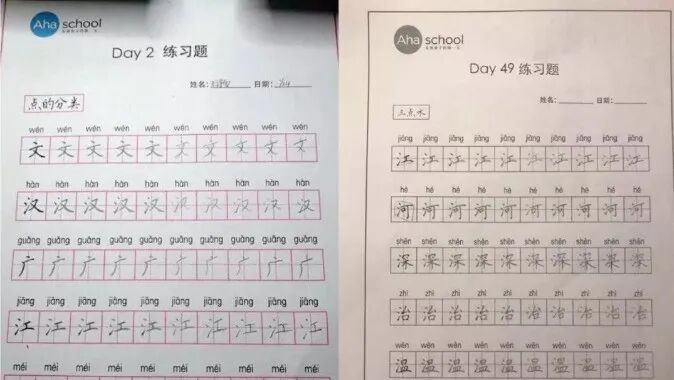 Aha school
Day 2 练习题
姓名: 日期:
点的分类
wén wén wén wén wén wén wén wén wén wén
文 文 文 文 文 文 文 文 文 文
hàn hàn hàn hàn hàn hàn hàn hàn hàn hàn
汉 汉 汉 汉 汉 汉 汉 汉 汉 汉
guǎng guǎng guǎng guǎng guǎng guǎng guǎng guǎng guǎng guǎng
广 广 广 广 广 广 广 广 广 广
jiāng jiāng jiāng jiāng jiāng jiāng jiāng jiāng jiāng jiāng
江 江 江 江 江 江 江 江 江 江
méi méi méi méi méi méi méi méi méi méi
Aha school
Day 49 练习题
姓名: 日期:
三点水
jiāng jiāng jiāng jiāng jiāng jiāng jiāng jiāng jiāng jiāng
江 江 江 江 江 江 江 江 江 江
hé hé hé hé hé hé hé hé hé hé
河 河 河 河 河 河 河 河 河 河
shēn shēn shēn shēn shēn shēn shēn shēn shēn shēn
深 深 深 深 深 深 深 深 深 深
zhì zhì zhì zhì zhì zhì zhì zhì zhì zhì
治 治 治 治 治 治 治 治 治 治
wēn wēn wēn wēn wēn wēn wēn wēn wēn wēn
温 温 温 温 温 温 温 温 温 温